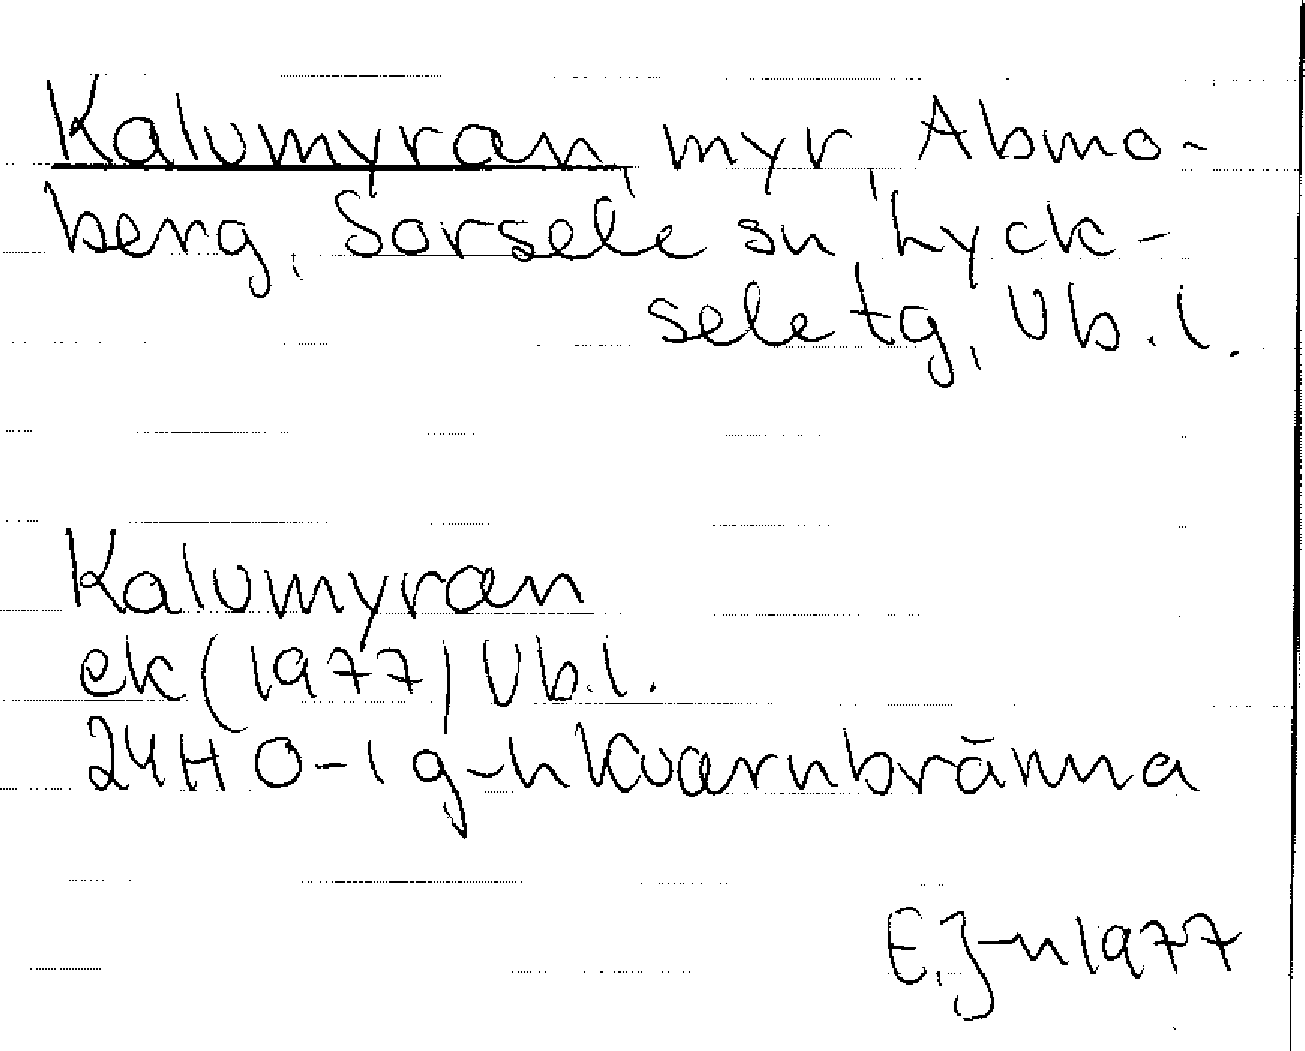 Kalvmyran, myr, Abmo-
berg, Sorsele sn, Lyck-
sele tg, Vb.l.
Kalvmyran
ek (1977) Vb.l.
24H 0-1 g-h Kvarnbränna
E.J-n 1977